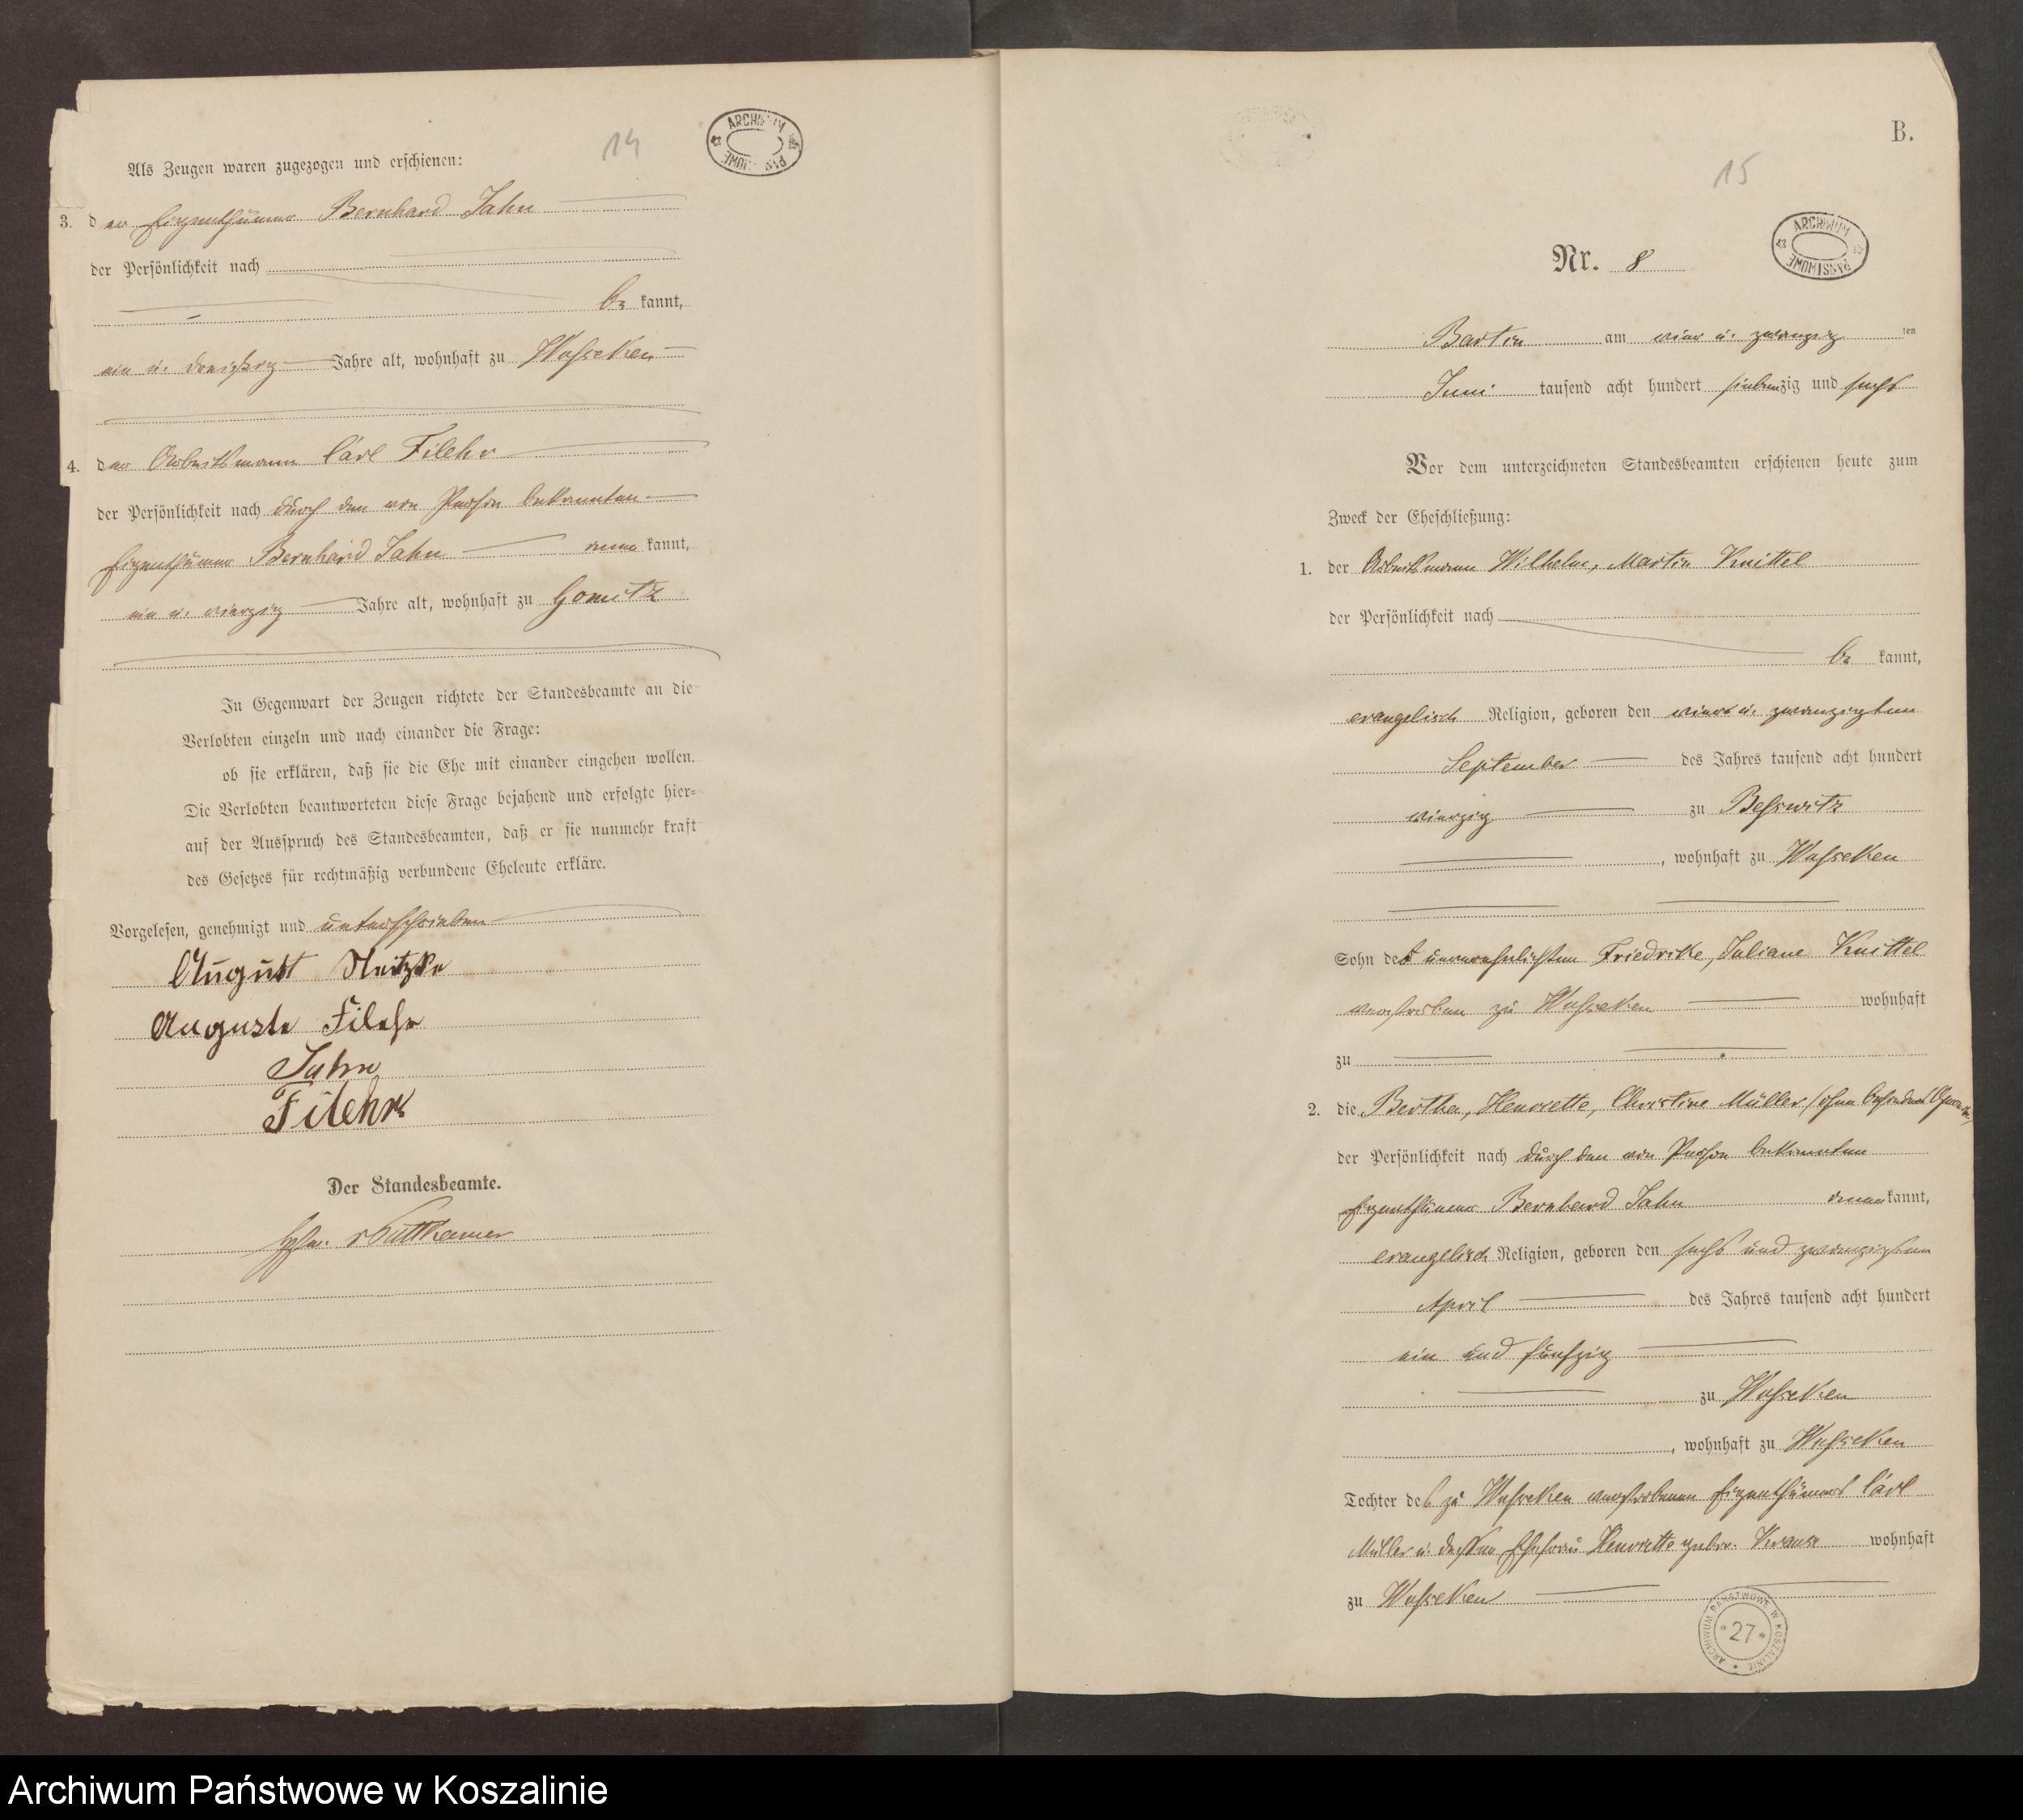 14
ARCHIWUM PAŃSTWOWE
Als Zeugen waren zugezogen und erschienen:
3. der Eigenthümer Bernhard Jahn
der Persönlichkeit nach
be kannt,
ein u. dreißig Jahre alt, wohnhaft zu Wusseken
4. der Arbeitsmann Carl Filehr
der Persönlichkeit nach durch den von Person bekannten
Eigenthümer Bernhard Jahn aner kannt,
ein u. vierzig Jahre alt, wohnhaft zu Gomitz
In Gegenwart der Zeugen richtete der Standesbeamte an die
Verlobten einzeln und nach einander die Frage:
ob sie erklären, daß sie die Ehe mit einander eingehen wollen.
Die Verlobten beantworteten diese Frage bejahend und erfolgte hier-
auf der Ausspruch des Standesbeamten, daß er sie nunmehr kraft
des Gesetzes für rechtmäßig verbundene Eheleute erkläre.
Vorgelesen, genehmigt und unterschrieben
August Neitzke
Auguste Filehr
Jahn
Filehr
Der Standesbeamte.
v Puttkamer
B.
15
ARCHIWUM PAŃSTWOWE
Nr. 8
Bartin am vier u. zwanzig ten
Juni tausend acht hundert siebenzig und sechs
Vor dem unterzeichneten Standesbeamten erschienen heute zum
Zweck der Eheschließung:
1. der Arbeitsmann Wilhelm, Martin Knittel
der Persönlichkeit nach
be kannt,
evangelisch Religion, geboren den vier u. zwanzigsten
September des Jahres tausend acht hundert
vierzig zu Beßwitz
, wohnhaft zu Wusseken
Sohn der unverehelichten Friedrike, Juliane Knittel
verstorben zu Wusseken wohnhaft
zu
2. die Bertha, Henriette, Christine Müller (ohne besonderes Gewerbe)
der Persönlichkeit nach durch den von Person bekannten
Eigenthümer Bernhard Jahn anerkannt,
evangelisch Religion, geboren den sechs und zwanzigsten
April des Jahres tausend acht hundert
ein und fünfzig
zu Wusseken
, wohnhaft zu Wusseken
Tochter des zu Wusseken verstorbenen Eigenthümers Carl
Müller u. dessen Ehefrau Henriette gebor. Krause wohnhaft
zu Wusseken
ARCHIWUM PAŃSTWOWE W KOSZALINIE
*27*
Archiwum Państwowe w Koszalinie